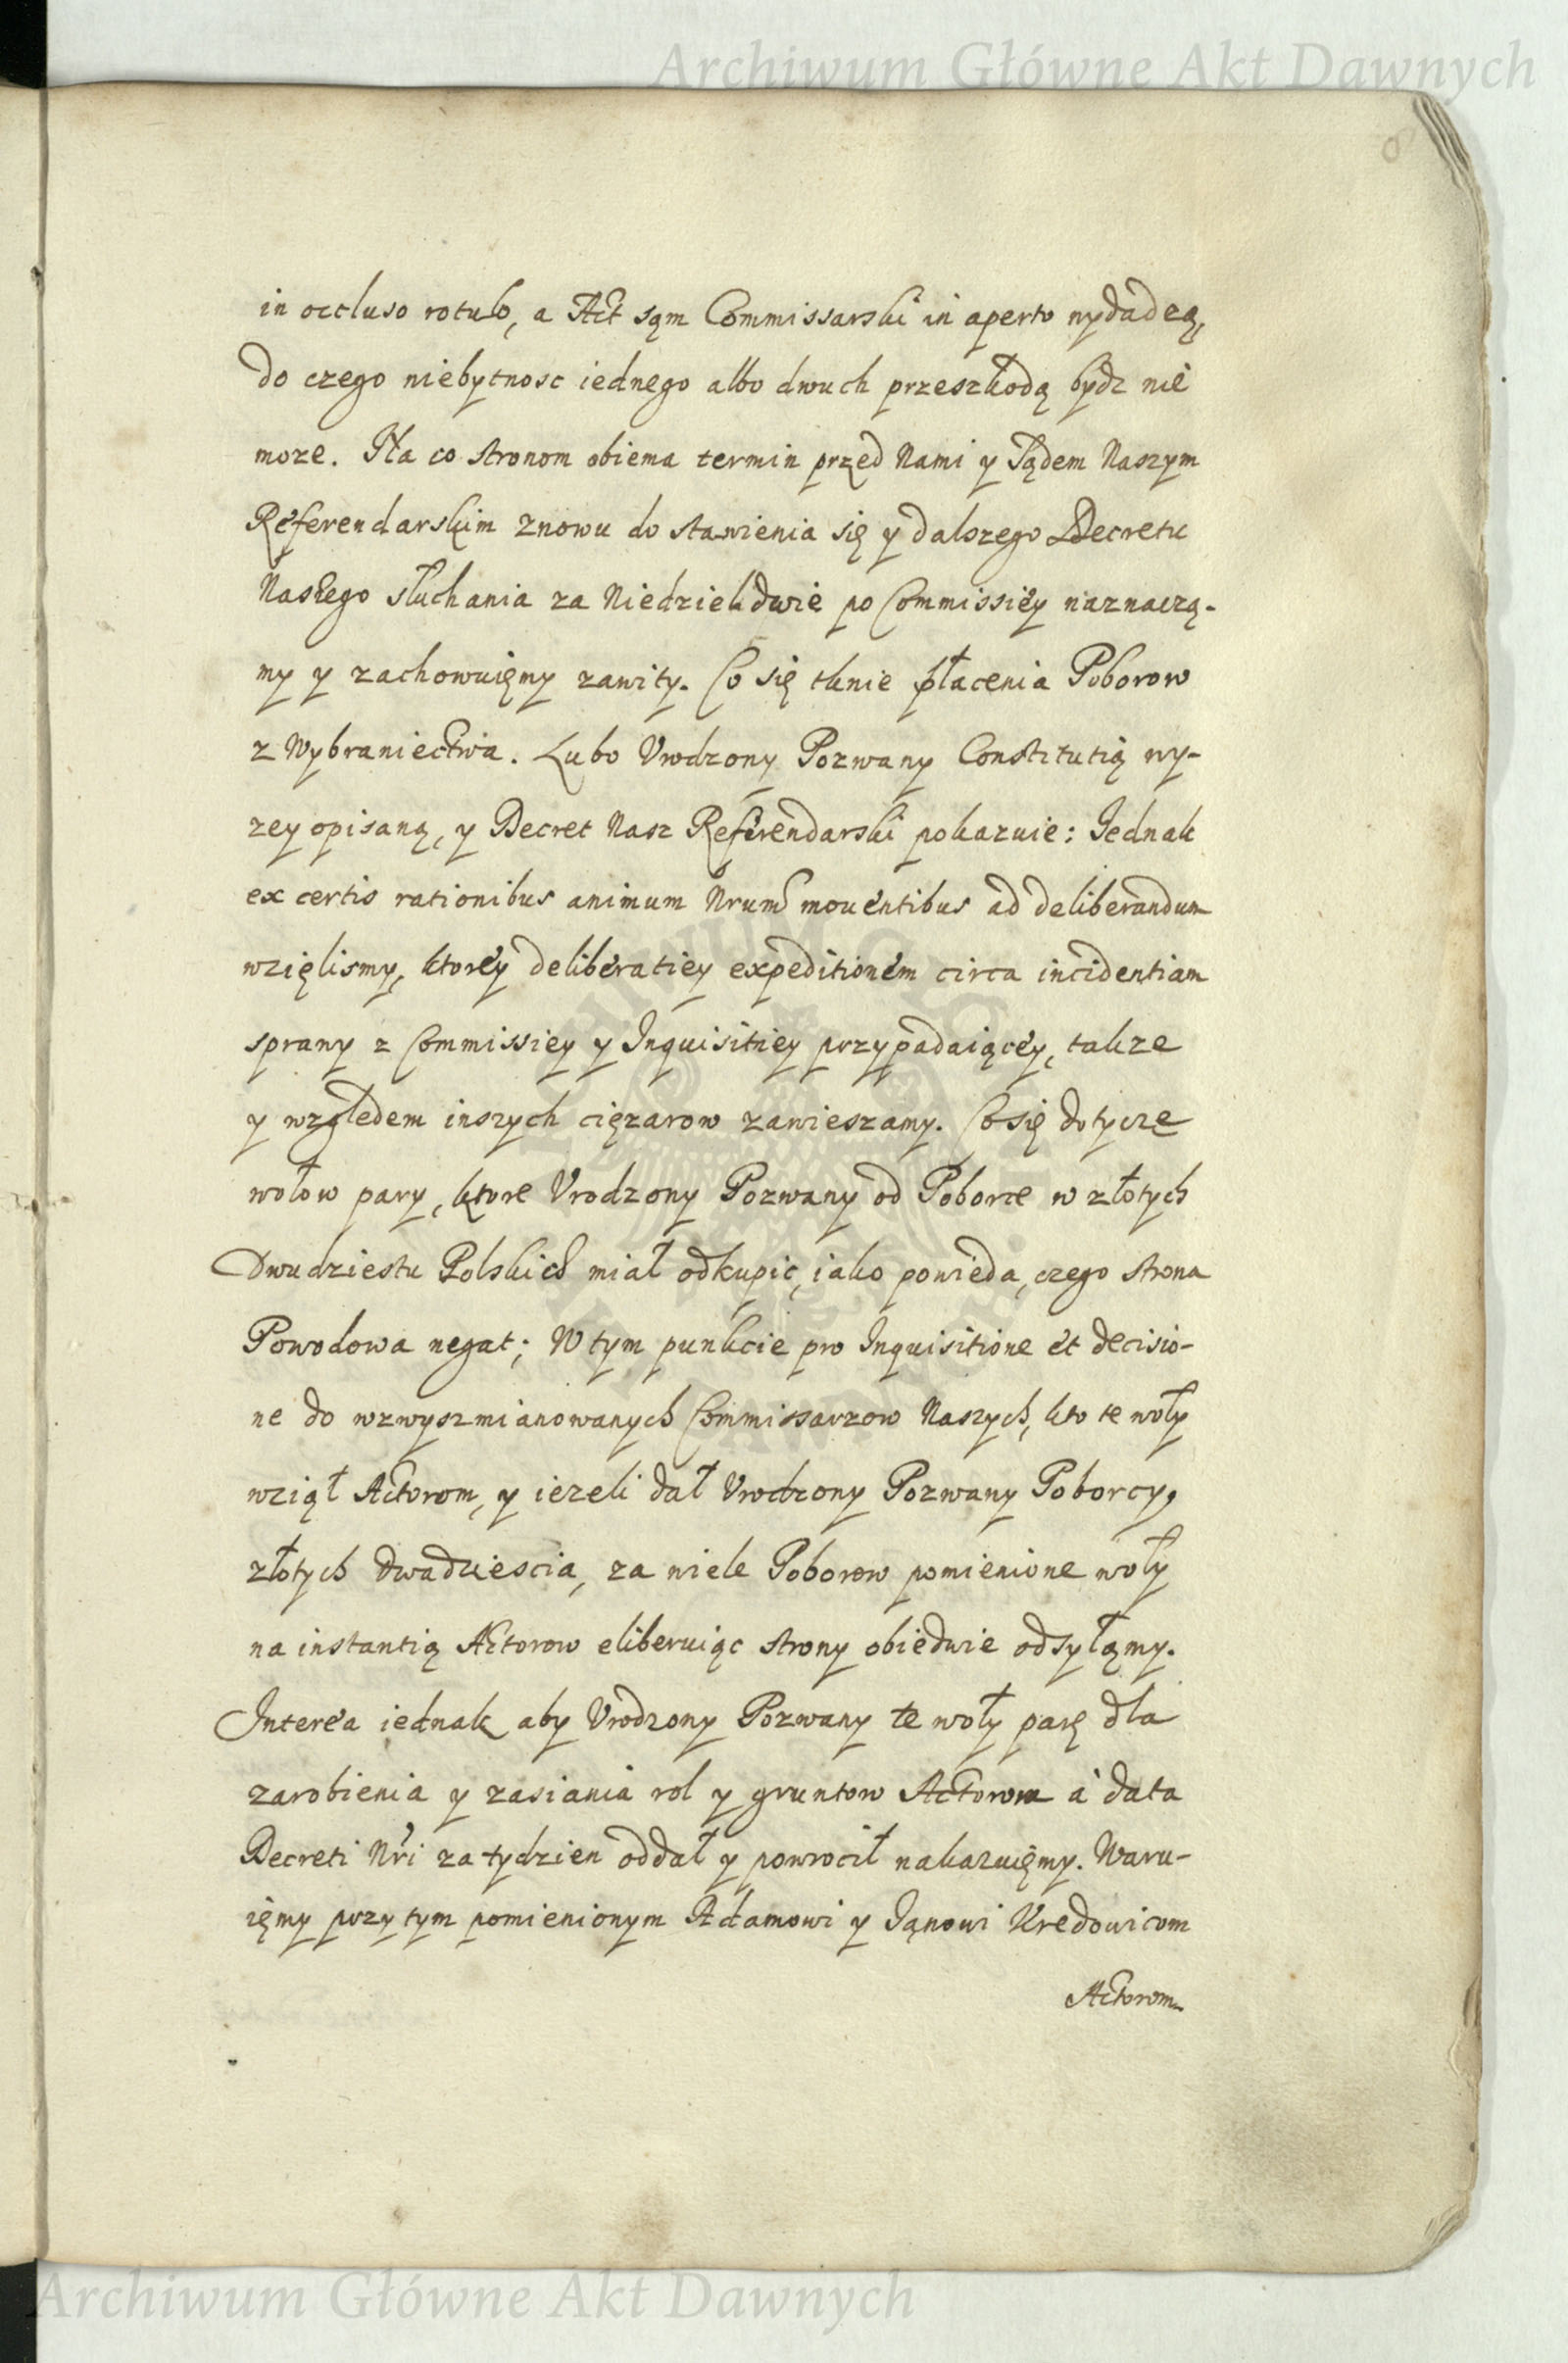 Archiwum Główne Akt Dawnych
in occluso rotulo, a Act sąm Commissarski in aperto wydadzą,
do czego niebytnosc iednego albo dwuch przeszkodą bydz nie
moze. Na co stronom obiema termin przed Nami y Sądem Naszym
Referendarskim znowu do stawienia się y dalszego Decretu
Naszego słuchania za Niedzieli dwie po Commissiey naznaczą-
my y zachowuięmy zawity. Co się tknie płacenia Poborow
z Wybraniectwa. Lubo Vrodzony Pozwany Constitutią wy-
zey opisaną, y Decret Nasz Referendarski pokazuie: Jednak
ex certis rationibus animum Nrum mouentibus ad deliberandum
wzięlismy, ktorey deliberatiey expeditionem circa incidentiam
sprawy z Commissiey y Inquisitiey przypadaiącey, takze
y względem inszych cięzarow zawieszamy. Co się dotycze
wołow pary, ktore Vrodzony Pozwany od Poborce w złotych
Dwudziestu Polskich miał odkupic, iako powieda, czego strona
Powodowa negat; W tym punkcie pro Inquisitione et decisio-
ne do wzwyszmianowanych Commissarzow Naszych, kto te woły
wziął Actorom, y iezeli dał Vrodzony Pozwany Poborcy,
złotych dwadziescia, za wiele Poborow pomienione woły
na instantią Actorow eliberuiąc strony obiedwie odsyłąmy.
Interea iednak aby Vrodzony Pozwany te woły parę dla
zarobienia y zasiania rol y gruntow Actorom à data
Decreti Nri za tydzien oddał y powrocił nakazuięmy. Waru-
ięmy przy tym pomienionym Adamowi y Jąnowi Kredowicom
Actorom
Archiwum Główne Akt Dawnych